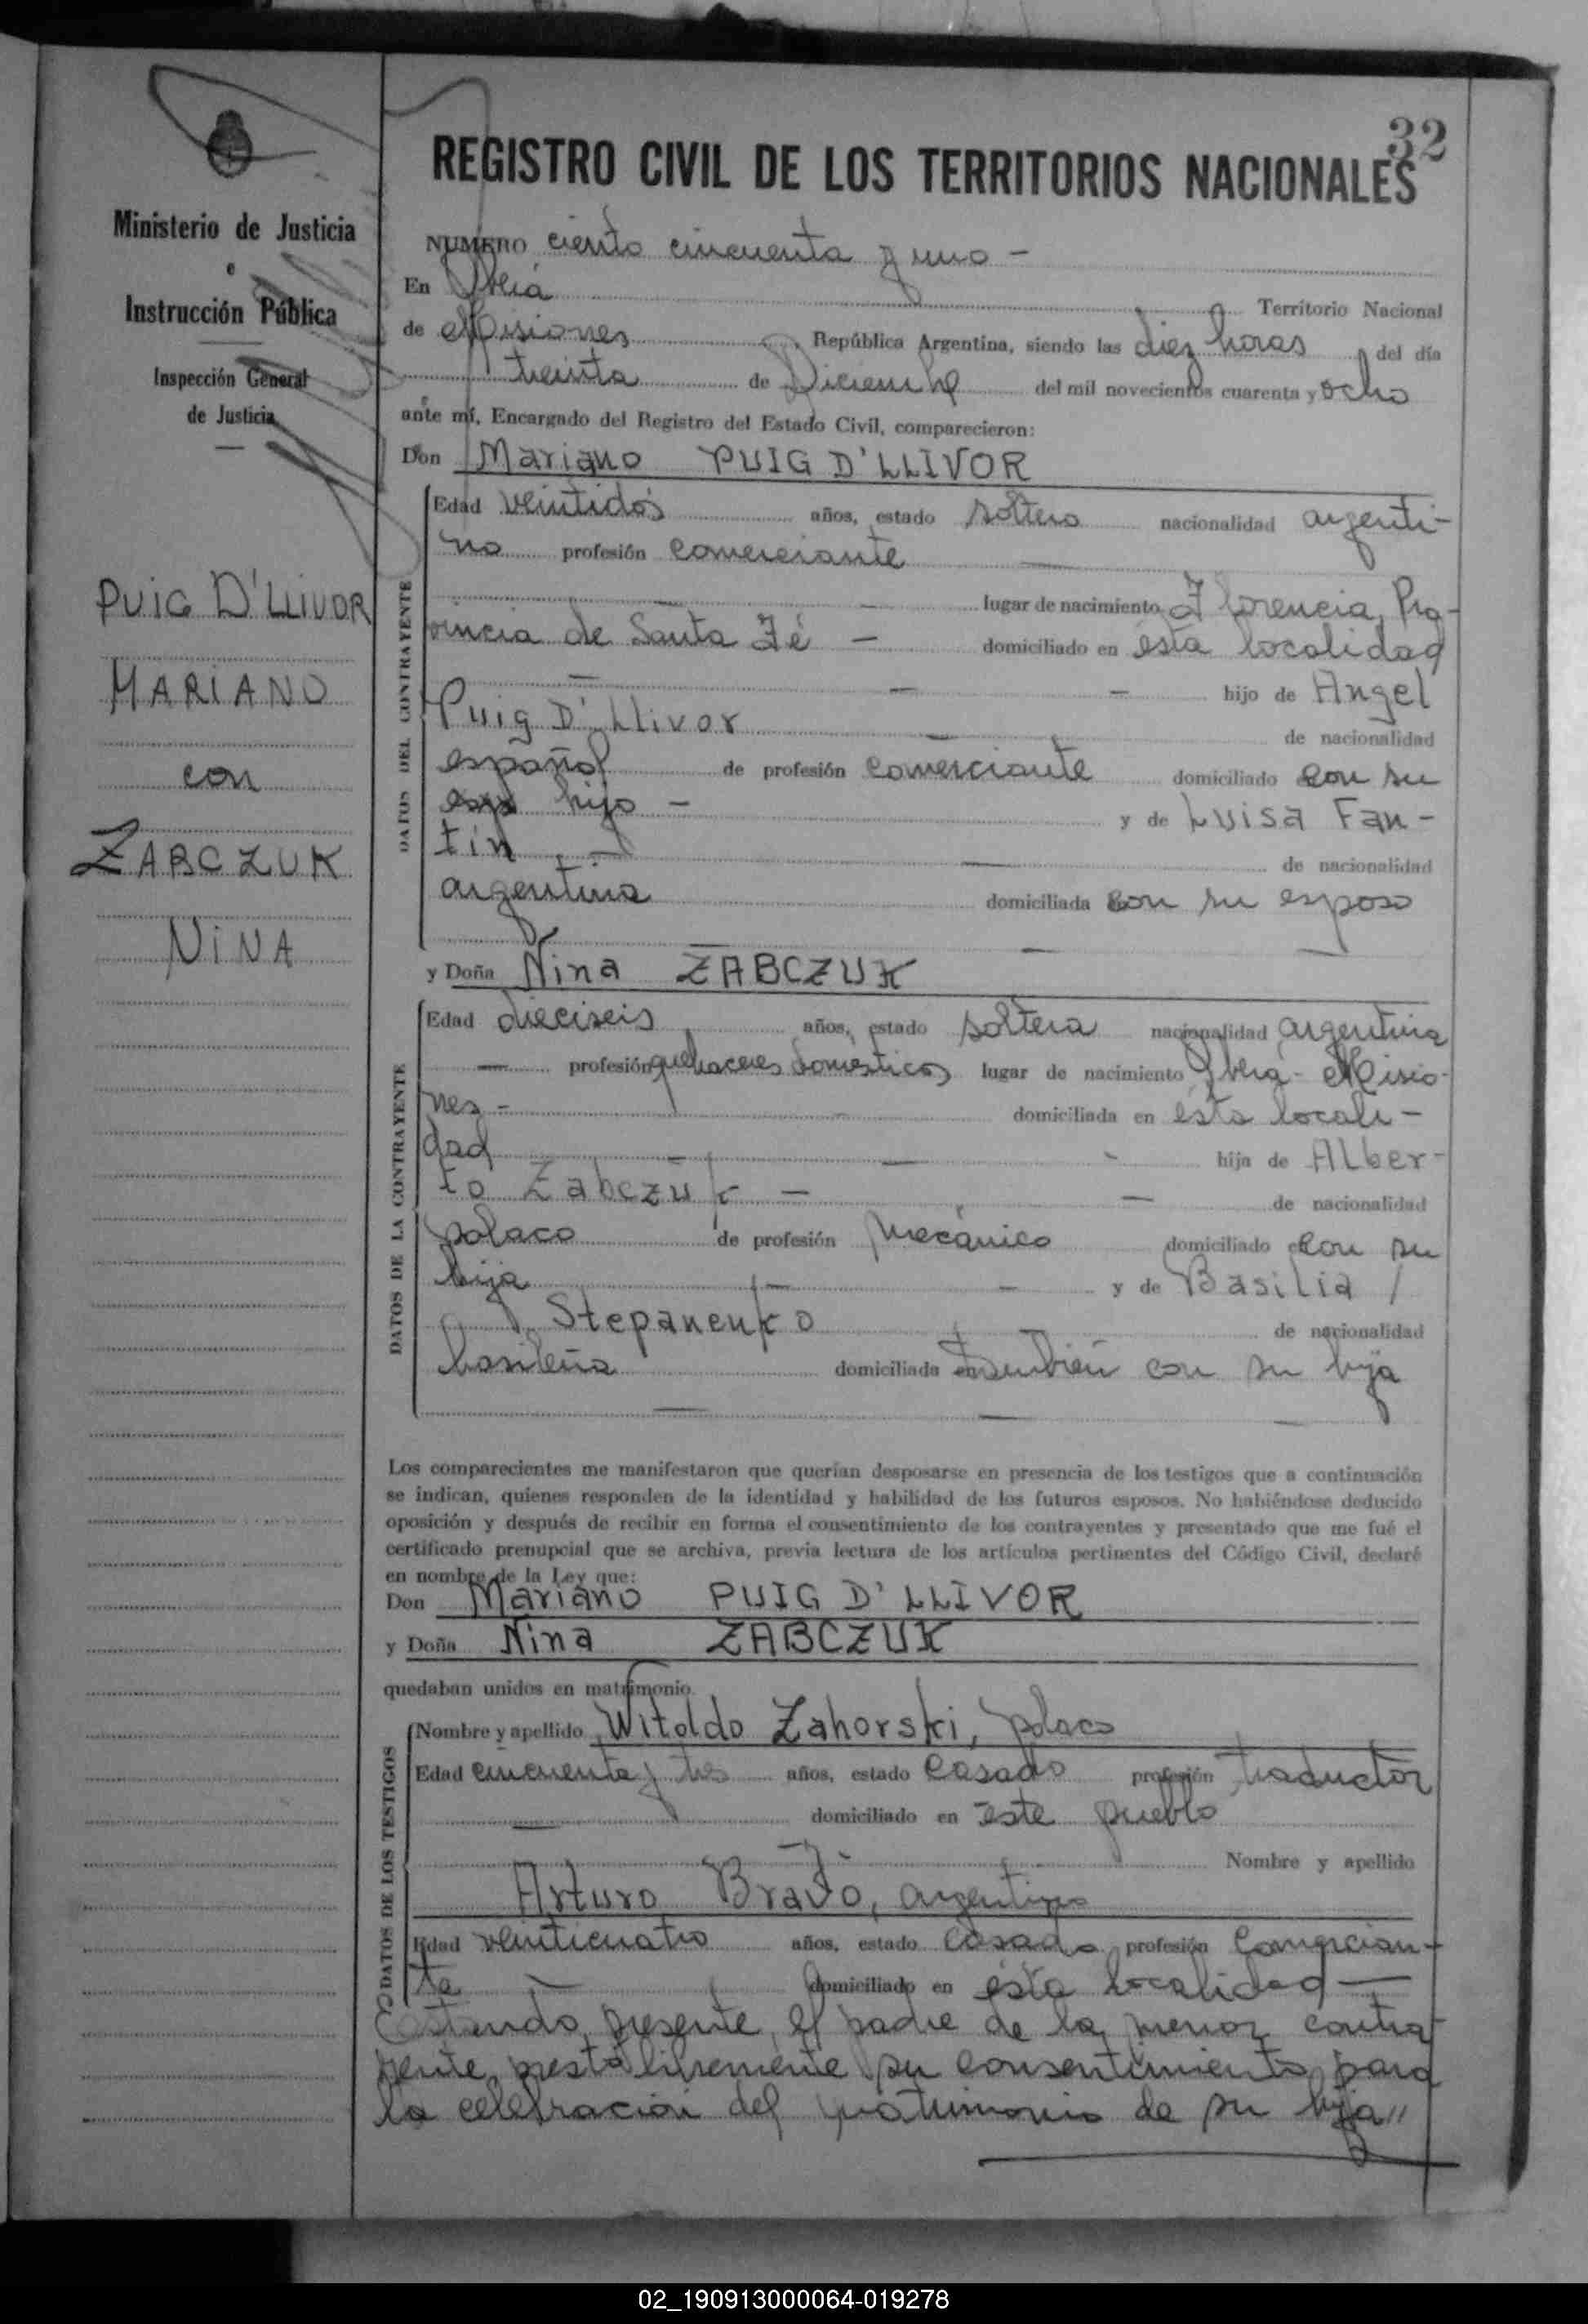 32
REGISTRO CIVIL DE LOS TERRITORIOS NACIONALES
Ministerio de Justicia
e
Instrucción Pública
Inspección General
de Justicia
PUIG D'LLIVOR
MARIANO
con
ZABCZUK
NINA
NUMERO ciento cincuenta y uno -
En Oberá Territorio Nacional
de Misiones República Argentina, siendo las diez horas del día
treinta de Diciembre del mil novecientos cuarenta y ocho
ante mí, Encargado del Registro del Estado Civil, comparecieron:
Don Mariano PUIG D'LLIVOR
DATOS DEL CONTRAYENTE
Edad veintidós años, estado soltero nacionalidad argenti-
no profesión comerciante —
— lugar de nacimiento Florencia, Pro-
vincia de Santa Fé — domiciliado en ésta localidad
— — — hijo de Angel
Puig D'Llivor — de nacionalidad
español de profesión comerciante domiciliado con su
hijo — y de Luisa Fan-
tín — — de nacionalidad
argentina domiciliada con su esposo
y Doña Nina ZABCZUK
DATOS DE LA CONTRAYENTE
Edad dieciseis años, estado soltera nacionalidad argentina
— profesión quehaceres domésticos lugar de nacimiento Oberá - Misio-
nes - — domiciliada en ésta locali-
dad — — - hija de Alber-
to Zabczuk — — de nacionalidad
polaco de profesión mecánico domiciliado con su
hija — — y de Basilia /
Stepanenko de nacionalidad
brasileña domiciliada en también con su hija
— — —
Los comparecientes me manifestaron que querían desposarse en presencia de los testigos que a continuación
se indican, quienes responden de la identidad y habilidad de los futuros esposos. No habiéndose deducido
oposición y después de recibir en forma el consentimiento de los contrayentes y presentado que me fué el
certificado prenupcial que se archiva, previa lectura de los artículos pertinentes del Código Civil, declaré
en nombre de la Ley que:
Don Mariano PUIG D'LLIVOR
y Doña Nina ZABCZUK
quedaban unidos en matrimonio.
DATOS DE LOS TESTIGOS
Nombre y apellido Witoldo Zahorski, polaco
Edad cincuenta y tres años, estado casado profesión traductor
— domiciliado en éste pueblo
— Nombre y apellido
Arturo Bravo, argentino
Edad veinticuatro años, estado casado profesión comercian-
te — domiciliado en ésta localidad —
Estando presente el padre de la menor contra-
yente, prestó libremente su consentimiento para
la celebración del matrimonio de su hija //
02_190913000064-019278